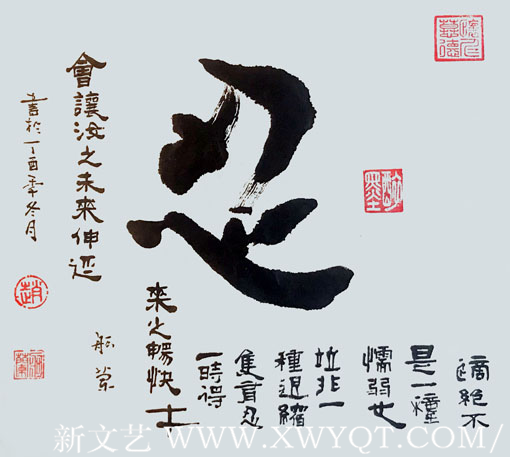 忍
絕不
是一種
懦弱也
竝非一
種退縮
隻有忍
一時得
來之暢快士
會讓汝之未來伸延
書於丁酉年冬月
趙
新文艺 WWW.XWYQT.COM/